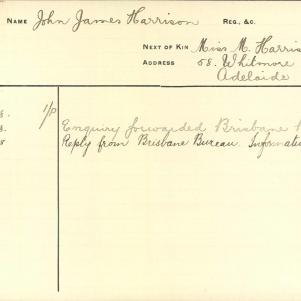 NAME John James Harrison REG., &C.
NEXT OF KIN Miss M. Harris
ADDRESS 58. Whitmore
Adelaide
1/P
Enquiry forwarded Brisbane
8 Reply from Brisbane Bureau. Informati